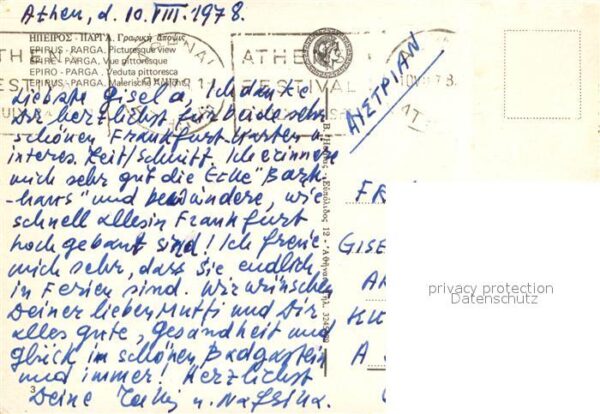 Athen, d. 10. VIII. 1978.
ΗΠΕΙΡΟΣ - ΠΑΡΓΑ. Γραφική άποψις
EPIRUS - PARGA. Picturesque view
EPIRE - PARGA. Vue pittoresque
EPIRO - PARGA. Veduta pittoresca
EPIRUS - PARGA. Malerische
ATHENAI
ATHEN
FESTIVAL
ΑΥΣΤΡΙΑΝ
Liebste Gisela, Ich danke
Dir herzlichst für beide sehr
schönen Frankfurt-Karten u.
interes. Zeit/schnitt. Ich erinnere
mich sehr gut die Ecke "Bach
-haus" und bewundere, wie
schnell alles in Frankfurt
hoch gebaut sind! Ich freue
mich sehr, dass sie endlich
in Ferien sind. Wir wünschen
Deiner lieben Mutti und Dir,
alles gute, gesandheit und
glück im schönen Badgastein
und immer! Herzlichst
Deine u.
12 - Αθήναι
FR
GISE
A
privacy protection
Datenschutz
3